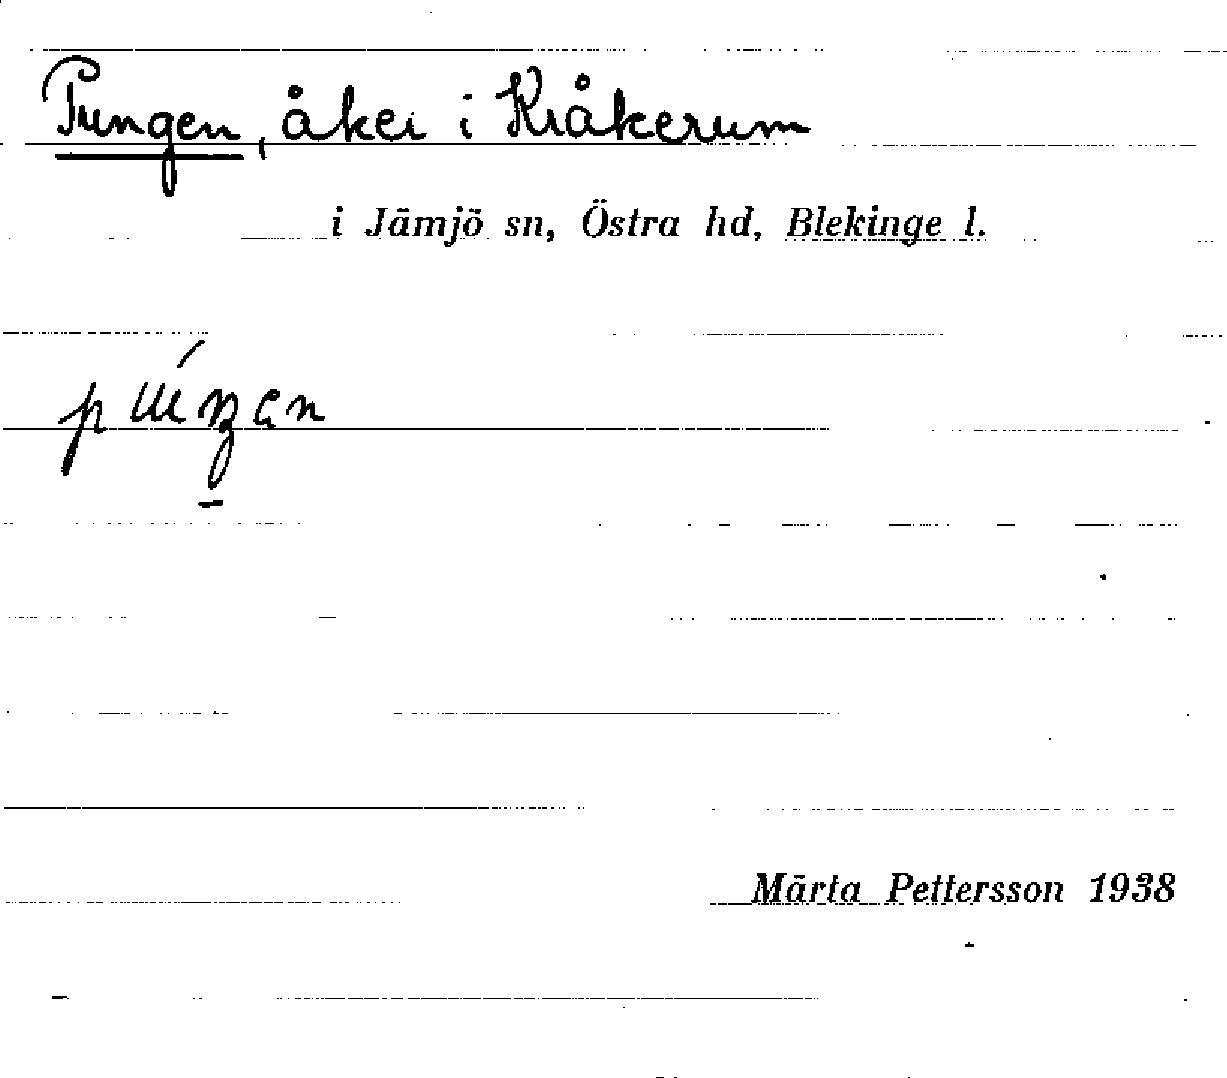 Pungen, åker i Kråkerum
i Jämjö sn, Östra hd, Blekinge l.
Märta Pettersson 1938